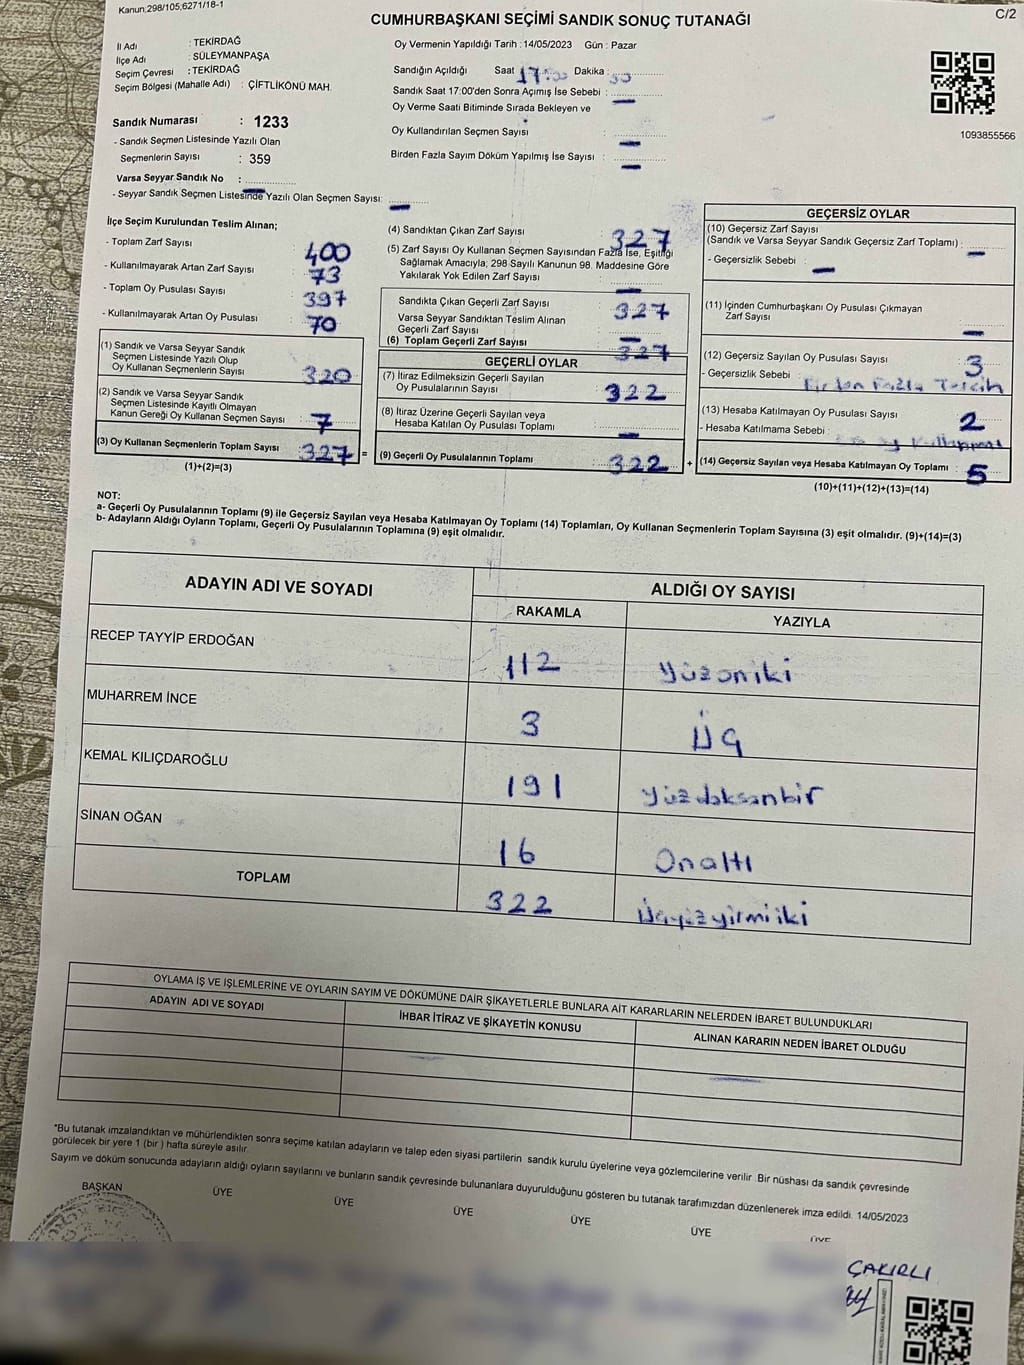 Kanun:298/105,6271/18-1
C/2
CUMHURBAŞKANI SEÇİMİ SANDIK SONUÇ TUTANAĞI
İl Adı : TEKİRDAĞ
İlçe Adı : SÜLEYMANPAŞA
Seçim Çevresi : TEKİRDAĞ
Seçim Bölgesi (Mahalle Adı) : ÇİFTLİKÖNÜ MAH.
Sandık Numarası : 1233
- Sandık Seçmen Listesinde Yazılı Olan
Seçmenlerin Sayısı : 359
Varsa Seyyar Sandık No :
- Seyyar Sandık Seçmen Listesinde Yazılı Olan Seçmen Sayısı:
Oy Vermenin Yapıldığı Tarih : 14/05/2023 Gün : Pazar
Sandığın Açıldığı Saat 17:00 Dakika :
Sandık Saat 17:00'den Sonra Açımış İse Sebebi :
Oy Verme Saati Bitiminde Sırada Bekleyen ve
Oy Kullandırılan Seçmen Sayısı :
Birden Fazla Sayım Döküm Yapılmış İse Sayısı :
1093855566
İlçe Seçim Kurulundan Teslim Alınan;
- Toplam Zarf Sayısı : 400
- Kullanılmayarak Artan Zarf Sayısı : 73
- Toplam Oy Pusulası Sayısı : 397
- Kullanılmayarak Artan Oy Pusulası : 70
(1) Sandık ve Varsa Seyyar Sandık
Seçmen Listesinde Yazılı Olup
Oy Kullanan Seçmenlerin Sayısı : 320
(2) Sandık ve Varsa Seyyar Sandık
Seçmen Listesinde Kayıtlı Olmayan
Kanun Gereği Oy Kullanan Seçmen Sayısı : 7
(3) Oy Kullanan Seçmenlerin Toplam Sayısı : 327 =
(1)+(2)=(3)
(4) Sandıktan Çıkan Zarf Sayısı : 327
(5) Zarf Sayısı Oy Kullanan Seçmen Sayısından Fazla İse, Eşitliği
Sağlamak Amacıyla; 298 Sayılı Kanunun 98. Maddesine Göre
Yakılarak Yok Edilen Zarf Sayısı :
Sandıkta Çıkan Geçerli Zarf Sayısı : 327
Varsa Seyyar Sandıktan Teslim Alınan
Geçerli Zarf Sayısı :
(6) Toplam Geçerli Zarf Sayısı : 327
GEÇERLİ OYLAR
(7) İtiraz Edilmeksizin Geçerli Sayılan
Oy Pusulalarının Sayısı : 322
(8) İtiraz Üzerine Geçerli Sayılan veya
Hesaba Katılan Oy Pusulası Toplamı :
(9) Geçerli Oy Pusulalarının Toplamı : 322 +
GEÇERSİZ OYLAR
(10) Geçersiz Zarf Sayısı
(Sandık ve Varsa Seyyar Sandık Geçersiz Zarf Toplamı) :
- Geçersizlik Sebebi :
(11) İçinden Cumhurbaşkanı Oy Pusulası Çıkmayan
Zarf Sayısı :
(12) Geçersiz Sayılan Oy Pusulası Sayısı : 3
- Geçersizlik Sebebi : Birden Fazla Tercih
(13) Hesaba Katılmayan Oy Pusulası Sayısı : 2
- Hesaba Katılmama Sebebi :
(14) Geçersiz Sayılan veya Hesaba Katılmayan Oy Toplamı : 5
(10)+(11)+(12)+(13)=(14)
NOT:
a- Geçerli Oy Pusulalarının Toplamı (9) ile Geçersiz Sayılan veya Hesaba Katılmayan Oy Toplamı (14) Toplamları, Oy Kullanan Seçmenlerin Toplam Sayısına (3) eşit olmalıdır. (9)+(14)=(3)
b- Adayların Aldığı Oyların Toplamı, Geçerli Oy Pusulalarının Toplamına (9) eşit olmalıdır.
ADAYIN ADI VE SOYADI
ALDIĞI OY SAYISI
RAKAMLA YAZIYLA
RECEP TAYYİP ERDOĞAN 112 Yüzoniki
MUHARREM İNCE 3 Üç
KEMAL KILIÇDAROĞLU 191 Yüzdoksanbir
SİNAN OĞAN 16 Onaltı
TOPLAM 322 Üçyüzyirmiiki
OYLAMA İŞ VE İŞLEMLERİNE VE OYLARIN SAYIM VE DÖKÜMÜNE DAİR ŞİKAYETLERLE BUNLARA AİT KARARLARIN NELERDEN İBARET BULUNDUKLARI
ADAYIN ADI VE SOYADI
İHBAR İTİRAZ VE ŞİKAYETİN KONUSU
ALINAN KARARIN NEDEN İBARET OLDUĞU
*Bu tutanak imzalandıktan ve mühürlendikten sonra seçime katılan adayların ve talep eden siyasi partilerin sandık kurulu üyelerine veya gözlemcilerine verilir. Bir nüshası da sandık çevresinde
görülecek bir yere 1 (bir ) hafta süreyle asılır.
Sayım ve döküm sonucunda adayların aldığı oyların sayılarını ve bunların sandık çevresinde bulunanlara duyurulduğunu gösteren bu tutanak tarafımızdan düzenlenerek imza edildi. 14/05/2023
BAŞKAN ÜYE ÜYE ÜYE ÜYE ÜYE ÜYE
ÇAKIRLI